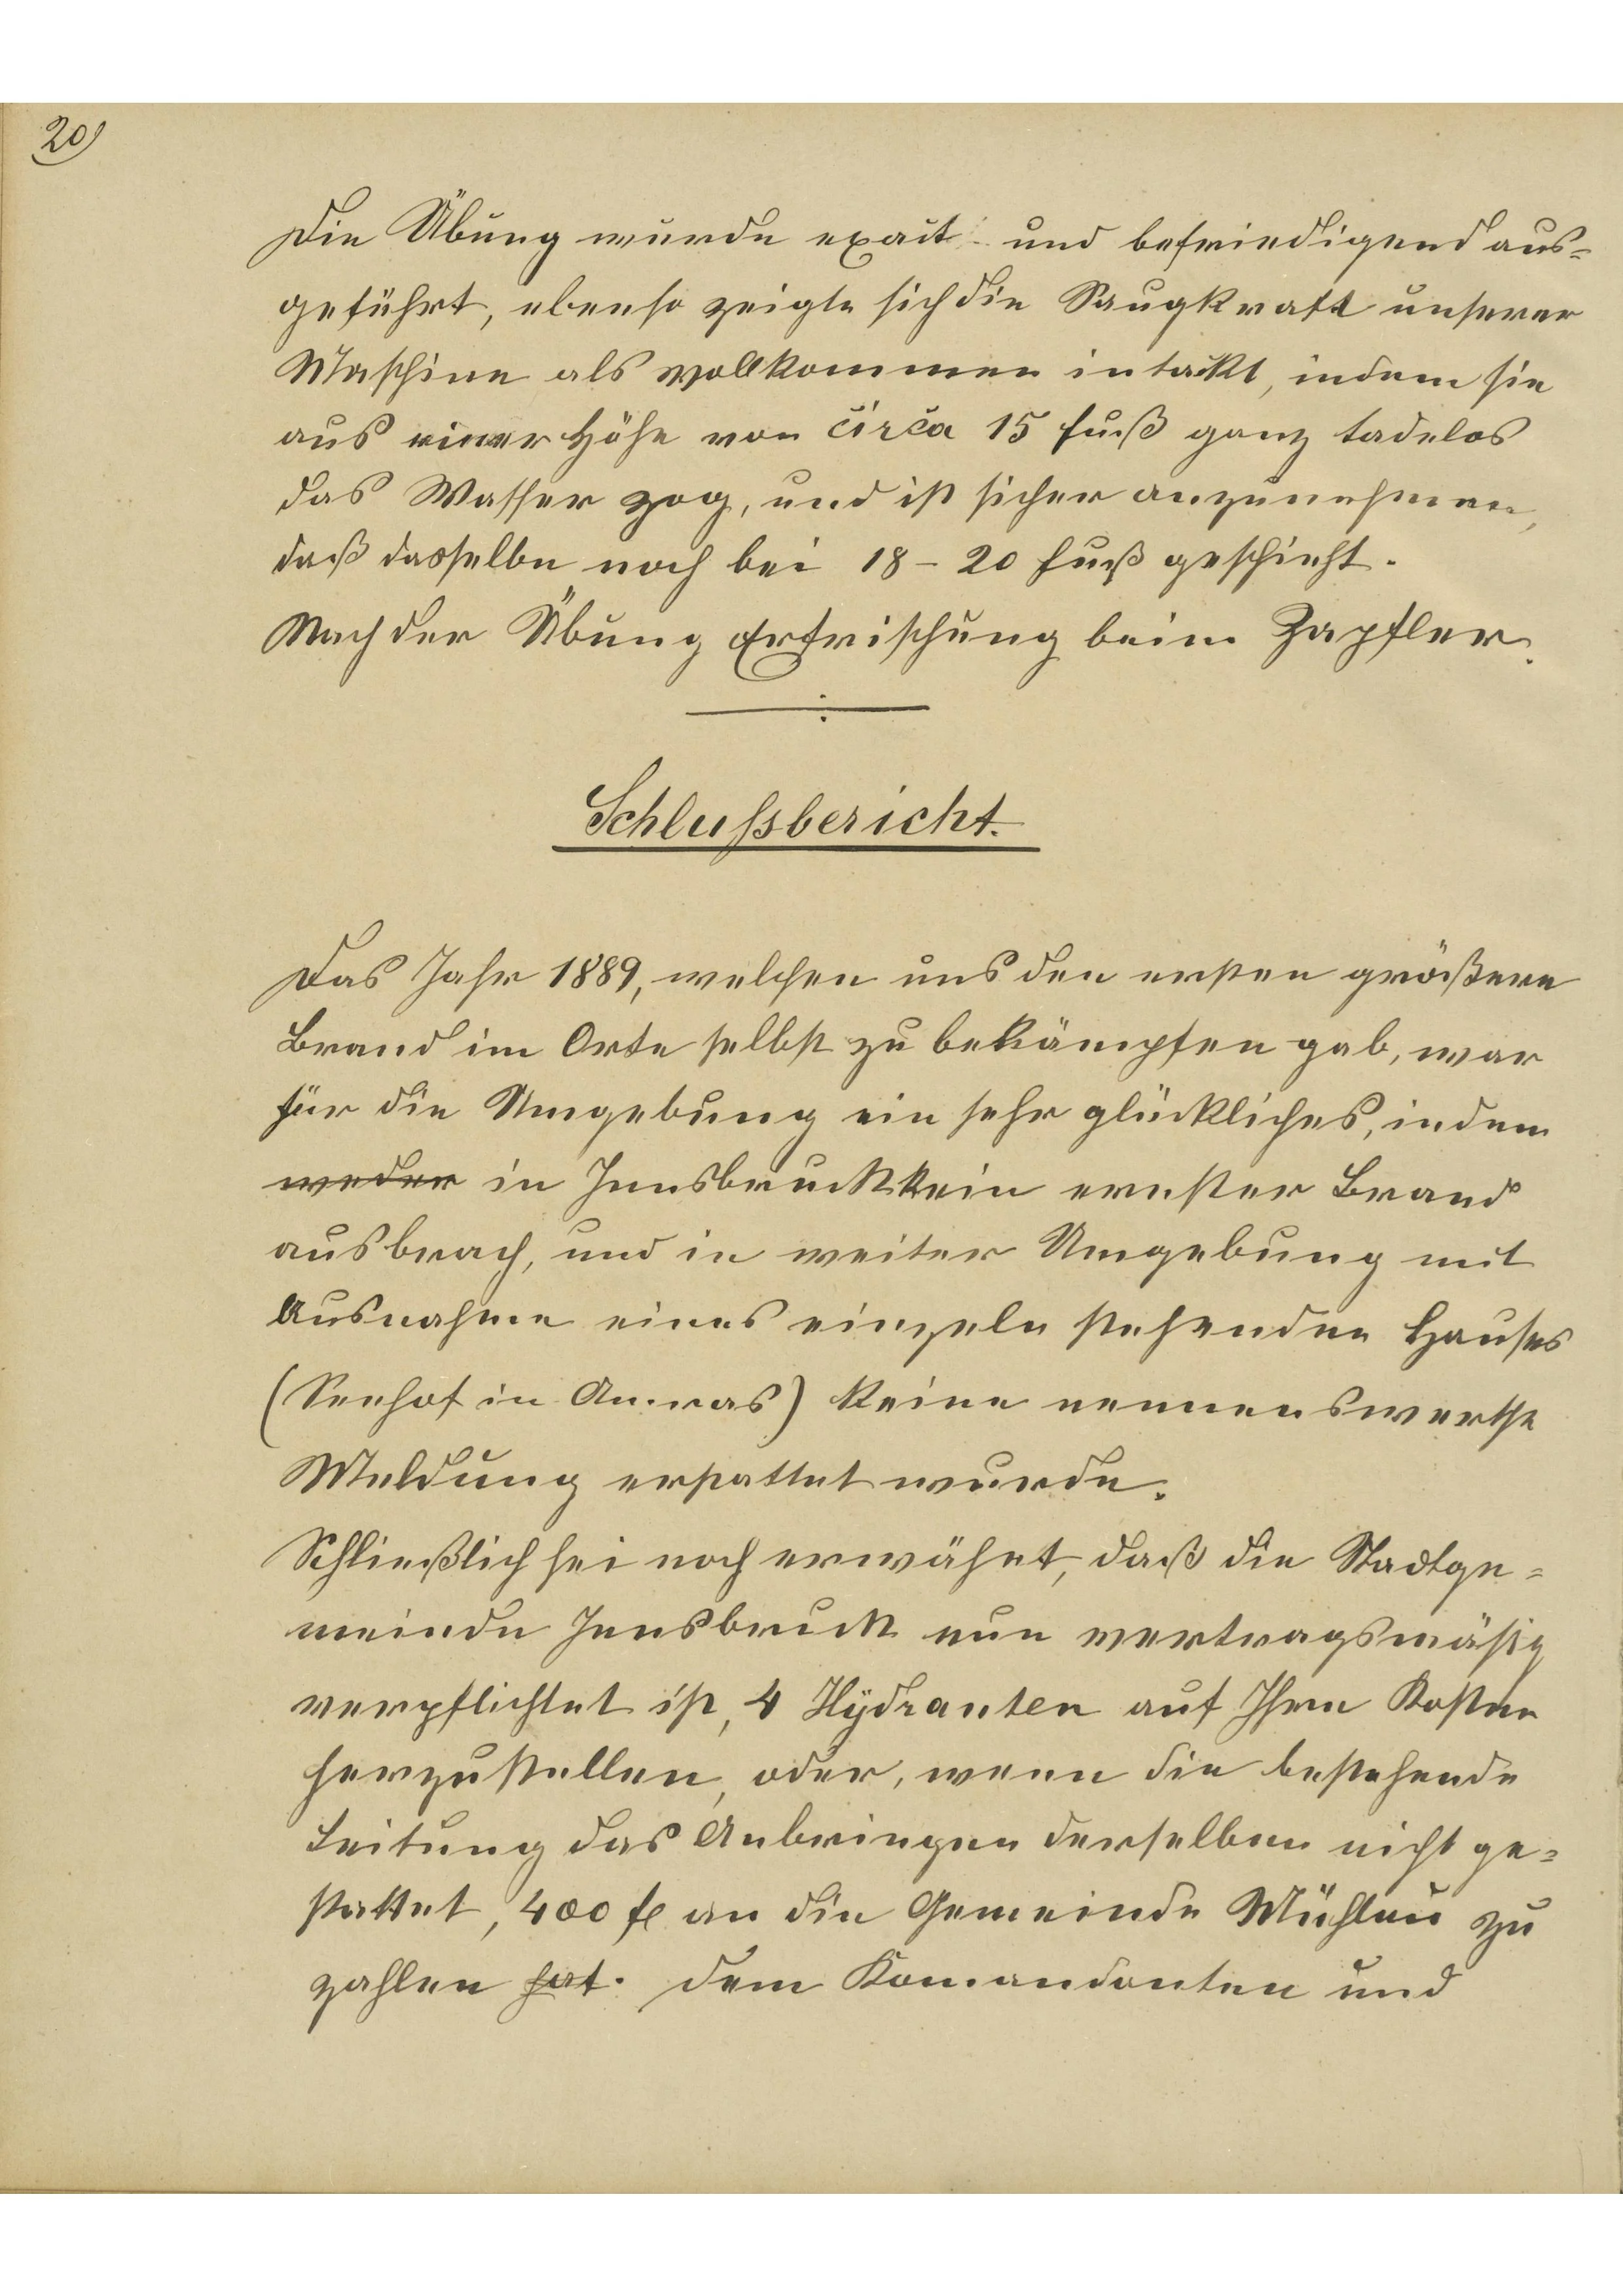 20)
Die Übung wurde exact und befriedigend aus=
geführt, ebenso zeigte sich die Saugkraft unserer
Maschine als vollkommen intackt, indem sie
aus einer Höhe von circa 15 Fuß ganz tadelos
das Wasser zog, und ist sicher anzunehmen,
daß dasselbe noch bei 18 - 20 Fuß geschieht.
Nach der Übung Erfrischung beim Zapfler.
Schlussbericht.
Das Jahr 1889, welchen uns den ersten größeren
Brand im Orte selbst zu bekämpfen gab, war
für die Umgebung ein sehr glückliches, indem
weder in Innsbruck kein ernster Brand
ausbrach, und in weiter Umgebung mit
Ausnahme eines einzeln stehenden Hauses
(Seehof in Amras) keine nennenswerthe
Meldung erstattet wurde.
Schließlich sei noch erwähnt, daß die Stadtge=
meinde Innsbruck nun vertragsmäßig
verpflichtet ist, 4 Hydranten auf Ihre Kosten
herzustellen, oder, wenn die bestehende
Leitung das Anbringen derselben nicht ge=
stattet, 400 fl an die Gemeinde Mühlau zu
zahlen hat. Dem Komandanten und